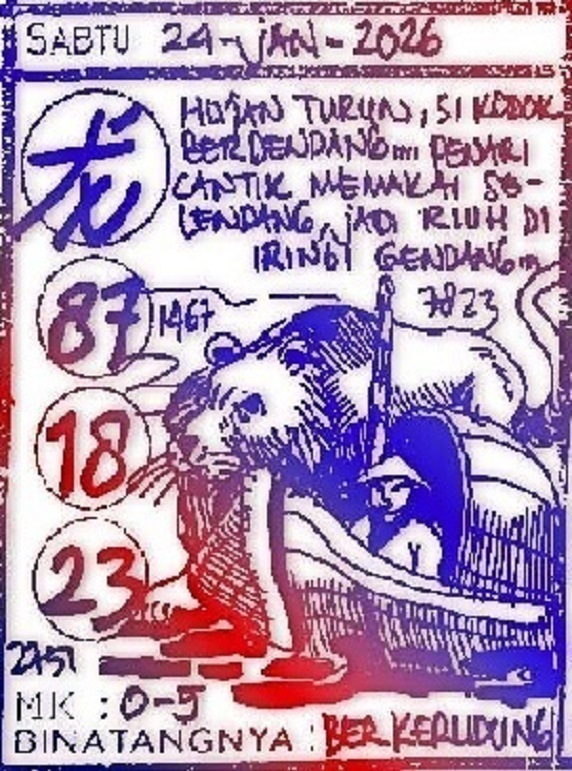 SABTU 24-JAN-2026
HUJAN TURUN, SI KODOK
BERDENDANG... PENARI
CANTIK MEMAKAI SE-
LENDANG, JADI RIUH DI
IRINGI GENDANG...
87 1467 7823
18
23
2751
MK : 0-5
BINATANGNYA : BERKERUDUNG